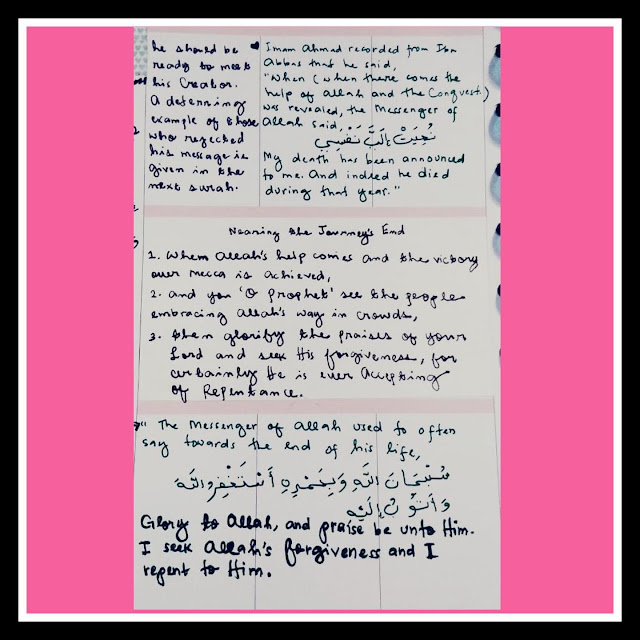 he should be
ready to meet
his Creator.
A deterring
example of those
who rejected
his message is
given in the
next surah.
Imam Ahmad recorded from Ibn
Abbas that he said,
"When (when there comes the
help of Allah and the Conquest)
was revealed, the Messenger of
Allah said,
نُعِيَتْ إِلَيَّ نَفْسِي
My death has been announced
to me. And indeed he died
during that year."
Nearing the Journey's End
1. When Allah's help comes and the victory
over Mecca is achieved,
2. and you 'O Prophet' see the people
embracing Allah's way in crowds,
3. then glorify the praises of your
Lord and seek His forgiveness, for
certainly He is ever Accepting
of Repentance.
" The Messenger of Allah used to often
say towards the end of his life,
سُبْحَانَ اللَّهِ وَبِحَمْدِهِ أَسْتَغْفِرُ اللَّهَ
وَأَتُوبُ إِلَيْهِ
Glory to Allah, and praise be unto Him.
I seek Allah's forgiveness and I
repent to Him.